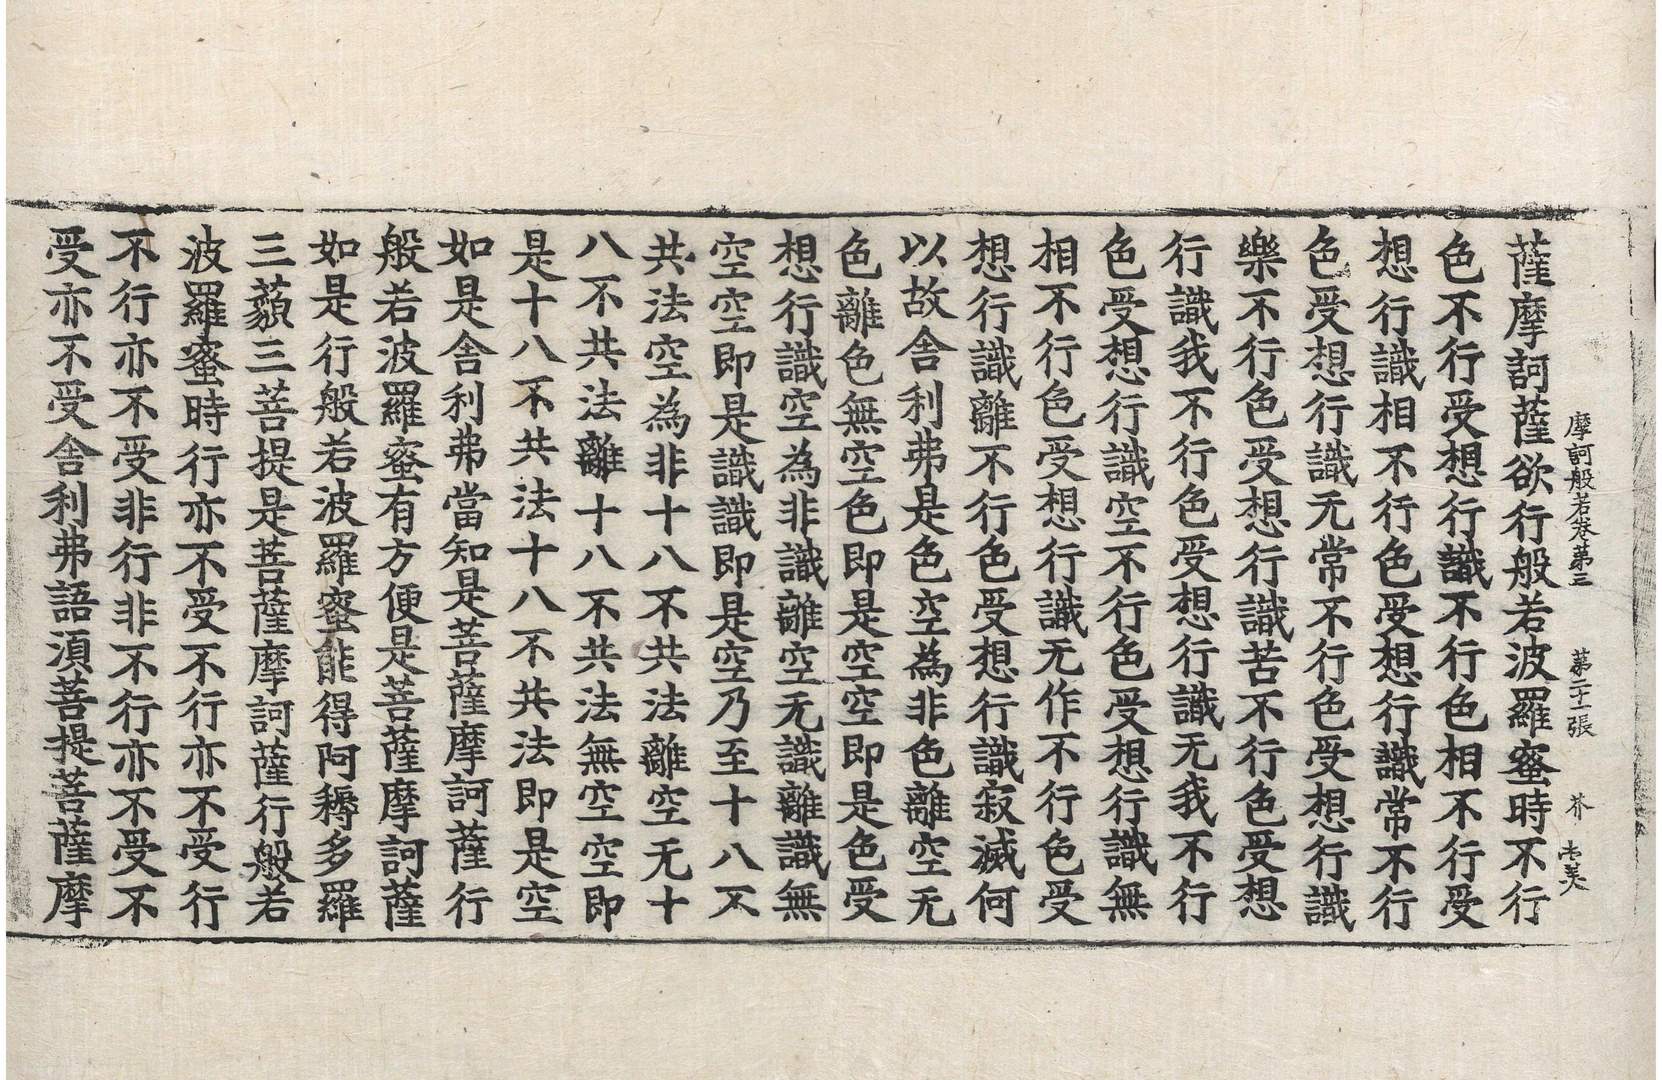 摩訶般若卷第三　第二十一張　芥
薩摩訶薩欲行般若波羅蜜時不行
色不行受想行識不行色相不行受
想行識相不行色受想行識常不行
色受想行識无常不行色受想行識
樂不行色受想行識苦不行色受想
行識我不行色受想行識无我不行
色受想行識空不行色受想行識無
相不行色受想行識无作不行色受
想行識離不行色受想行識寂滅何
以故舍利弗是色空為非色離空无
色離色無空色即是空空即是色受
想行識空為非識離空无識離識無
空空即是識識即是空乃至十八不
共法空為非十八不共法離空无十
八不共法離十八不共法無空空即
是十八不共法十八不共法即是空
如是舍利弗當知是菩薩摩訶薩行
般若波羅蜜有方便是菩薩摩訶薩
如是行般若波羅蜜能得阿耨多羅
三藐三菩提是菩薩摩訶薩行般若
波羅蜜時行亦不受不行亦不受行
不行亦不受非行非不行亦不受不
受亦不受舍利弗語湏菩提菩薩摩